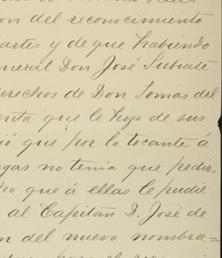 on del reconocimiento
artes y de que habiendo
neral Don José
derechos de Don Tomas del
enta que le hizo de sus
jó que por lo tocante á
gas no tenia que pedir,
que á ellas le pudie
al Capitán D. José de
n del nuevo nombra-